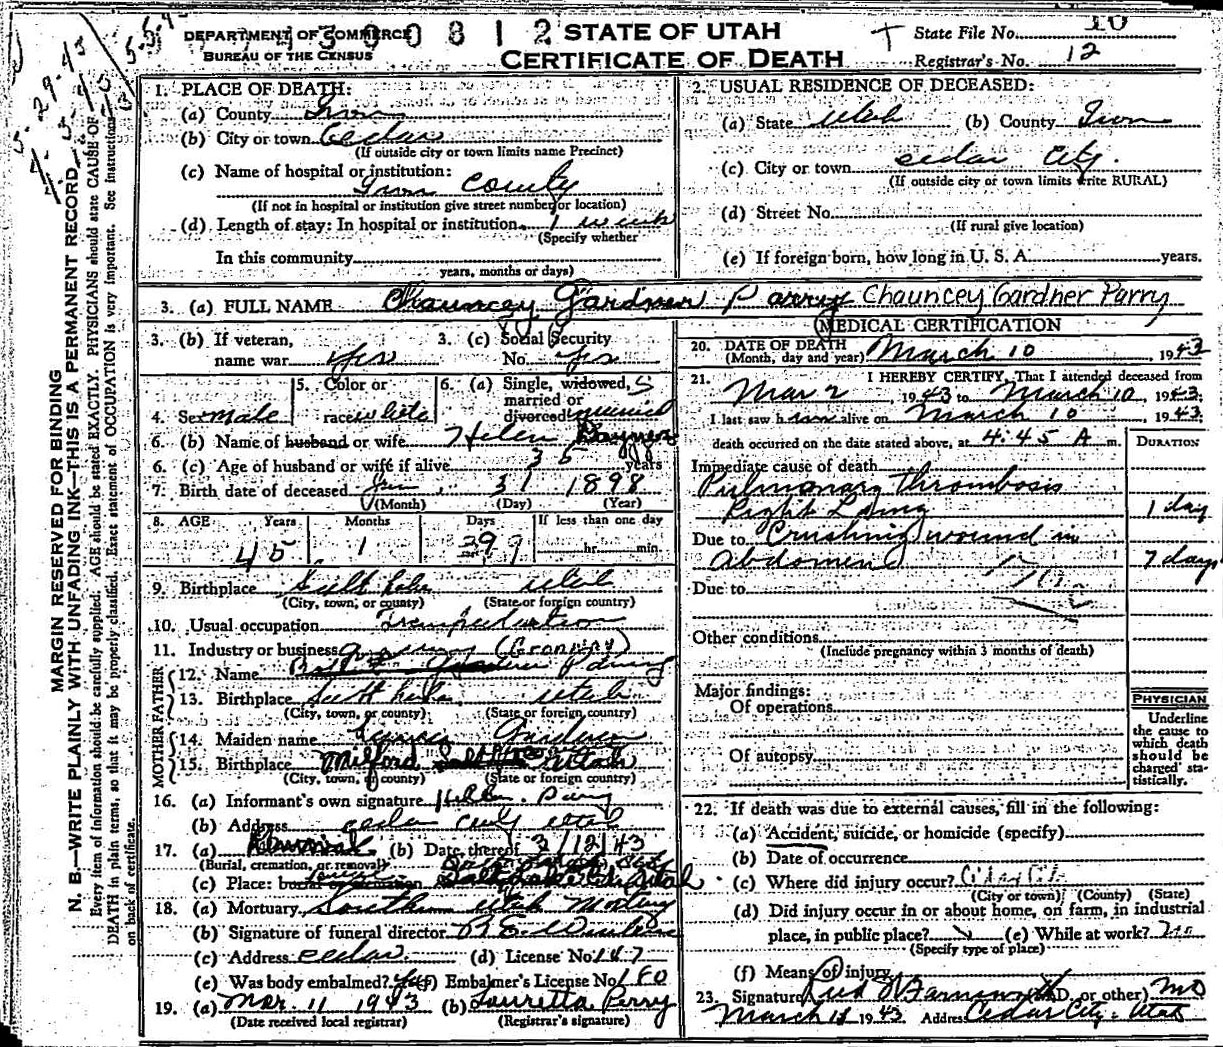 DEPARTMENT OF COMMERCE
BUREAU OF THE CENSUS
STATE OF UTAH
CERTIFICATE OF DEATH
State File No. 10
Registrar's No. 12
MARGIN RESERVED FOR BINDING
N. B.—WRITE PLAINLY WITH UNFADING INK—THIS IS A PERMANENT RECORD
Every item of information should be carefully supplied. AGE should be stated EXACTLY. PHYSICIANS should state CAUSE OF
DEATH in plain terms, so that it may be properly classified. Exact statement of OCCUPATION is very important. See instructions
on back of certificate.
1. PLACE OF DEATH:
(a) County Iron
(b) City or town Cedar
(If outside city or town limits name Precinct)
(c) Name of hospital or institution:
Iron County
(If not in hospital or institution give street number or location)
(d) Length of stay: In hospital or institution 1 week
(Specify whether
In this community
years, months or days)
2. USUAL RESIDENCE OF DECEASED:
(a) State Utah (b) County Iron
(c) City or town cedar City.
(If outside city or town limits write RURAL)
(d) Street No.
(If rural give location)
(e) If foreign born, how long in U. S. A. years.
3. (a) FULL NAME Chauncey Gardner Parry Chauncey Gardner Parry
3. (b) If veteran,
name war yes
3. (c) Social Security
No. yes
4. Sex male
5. Color or
race white
6. (a) Single, widowed, S
married or
divorced married
6. (b) Name of husband or wife Helen
6. (c) Age of husband or wife if alive 35 years
7. Birth date of deceased Jan. 31 1898
(Month) (Day) (Year)
8. AGE Years Months Days If less than one day
45 1 hr. min.
9. Birthplace Salt Lake Utah
(City, town, or county) (State or foreign country)
10. Usual occupation Transportation
11. Industry or business
FATHER
12. Name
13. Birthplace Salt Lake Utah
(City, town, or county) (State or foreign country)
MOTHER
14. Maiden name Gardner
15. Birthplace Milford Utah
(City, town, or county) (State or foreign country)
16. (a) Informant's own signature Helen Parry
(b) Address cedar City Utah
17. (a) Removal (b) Date thereof 3/12/43
(Burial, cremation, or removal)
(c) Place: burial or cremation Salt Lake City Utah
18. (a) Mortuary Southern Utah Mortuary
(b) Signature of funeral director
(c) Address cedar (d) License No. 147
(e) Was body embalmed? yes (f) Embalmer's License No. 180
19. (a) Mar. 11 1943 (b) Lauretta Perry
(Date received local registrar) (Registrar's signature)
MEDICAL CERTIFICATION
20. DATE OF DEATH
(Month, day and year) March 10, 1943
21. I HEREBY CERTIFY, That I attended deceased from
Mar 2, 1943 to March 10, 1943.
I last saw him alive on March 10, 1943.
death occurred on the date stated above, at 4:45 A m.
DURATION
Immediate cause of death
Pulmonary thrombosis
Right Lung 1 day
Due to Crushing wound in
Abdomen 7 days
Due to
Other conditions
(Include pregnancy within 3 months of death)
Major findings:
Of operations
Of autopsy
PHYSICIAN
Underline
the cause to
which death
should be
charged sta-
tistically.
22. If death was due to external causes, fill in the following:
(a) Accident, suicide, or homicide (specify)
(b) Date of occurrence
(c) Where did injury occur?
(City or town) (County) (State)
(d) Did injury occur in or about home, on farm, in industrial
place, in public place? (e) While at work? no
(Specify type of place)
(f) Means of injury
23. Signature Farnsworth (M.D. or other) MD
March 11 1943 Address Cedar City - Utah